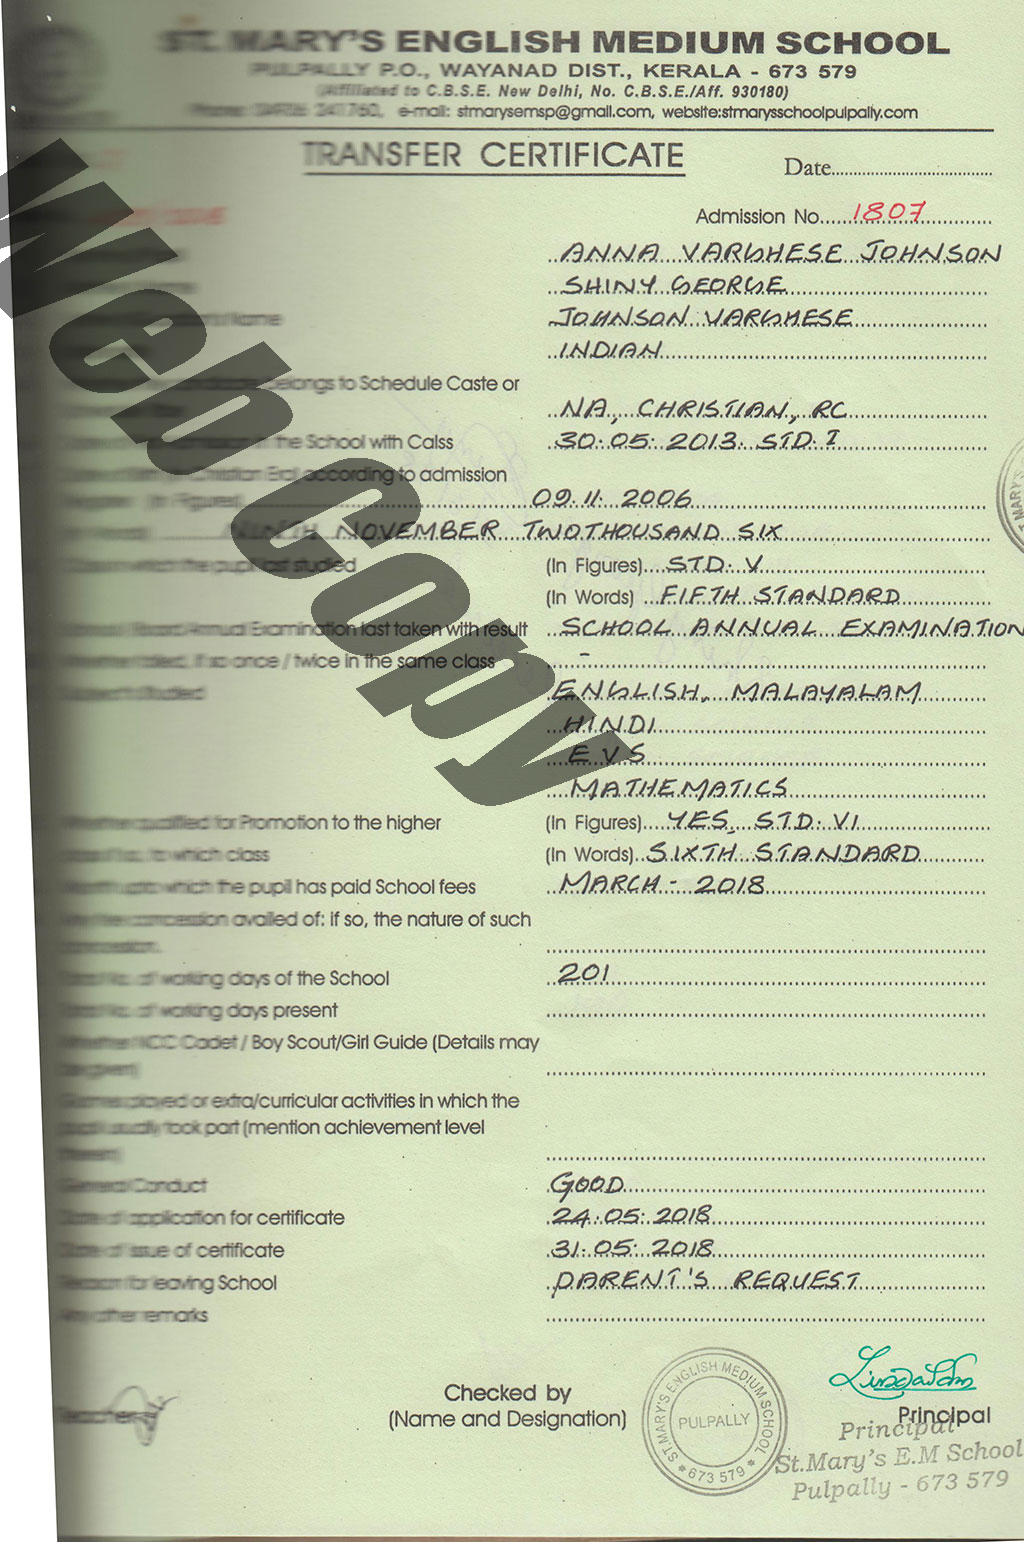 ST. MARY'S ENGLISH MEDIUM SCHOOL
PULPALLY P.O., WAYANAD DIST., KERALA - 673 579
(Affiliated to C.B.S.E. New Delhi, No. C.B.S.E./Aff. 930180)
e-mail: stmarysemsp@gmail.com, website:stmarysschoolpulpally.com
TRANSFER CERTIFICATE
Date
Admission No. 1807
ANNA VARGHESE JOHNSON
SHINY GEORGE
Name JOHNSON VARGHESE
INDIAN
belongs to Schedule Caste or
NA, CHRISTIAN, RC
in the School with Calss 30.05.2013. STD. I
according to admission
(In Figures) 09.11.2006
NINTH NOVEMBER TWOTHOUSAND SIX
in which the pupil last studied (In Figures) STD. V
(In Words) FIFTH STANDARD
Annual Examination last taken with result SCHOOL ANNUAL EXAMINATION
failed, if so once / twice in the same class -
Studied ENGLISH, MALAYALAM
HINDI
E V S
MATHEMATICS
qualified for Promotion to the higher (In Figures) YES, STD. VI
to which class (In Words) SIXTH STANDARD
which the pupil has paid School fees MARCH - 2018
concession availed of: if so, the nature of such
concession.
of working days of the School 201
of working days present
NCC Cadet / Boy Scout/Girl Guide (Details may
be given)
Games played or extra/curricular activities in which the
pupil usually took part (mention achievement level
General Conduct GOOD
Date of application for certificate 24.05.2018
Date of issue of certificate 31.05.2018
Reason for leaving School PARENT'S REQUEST
Any other remarks
Checked by
(Name and Designation)
Teacher
Principal
ST.MARY'S ENGLISH MEDIUM SCHOOL
PULPALLY
* 673 579 *
Principal
St.Mary's E.M School
Pulpally - 673 579
Web Copy